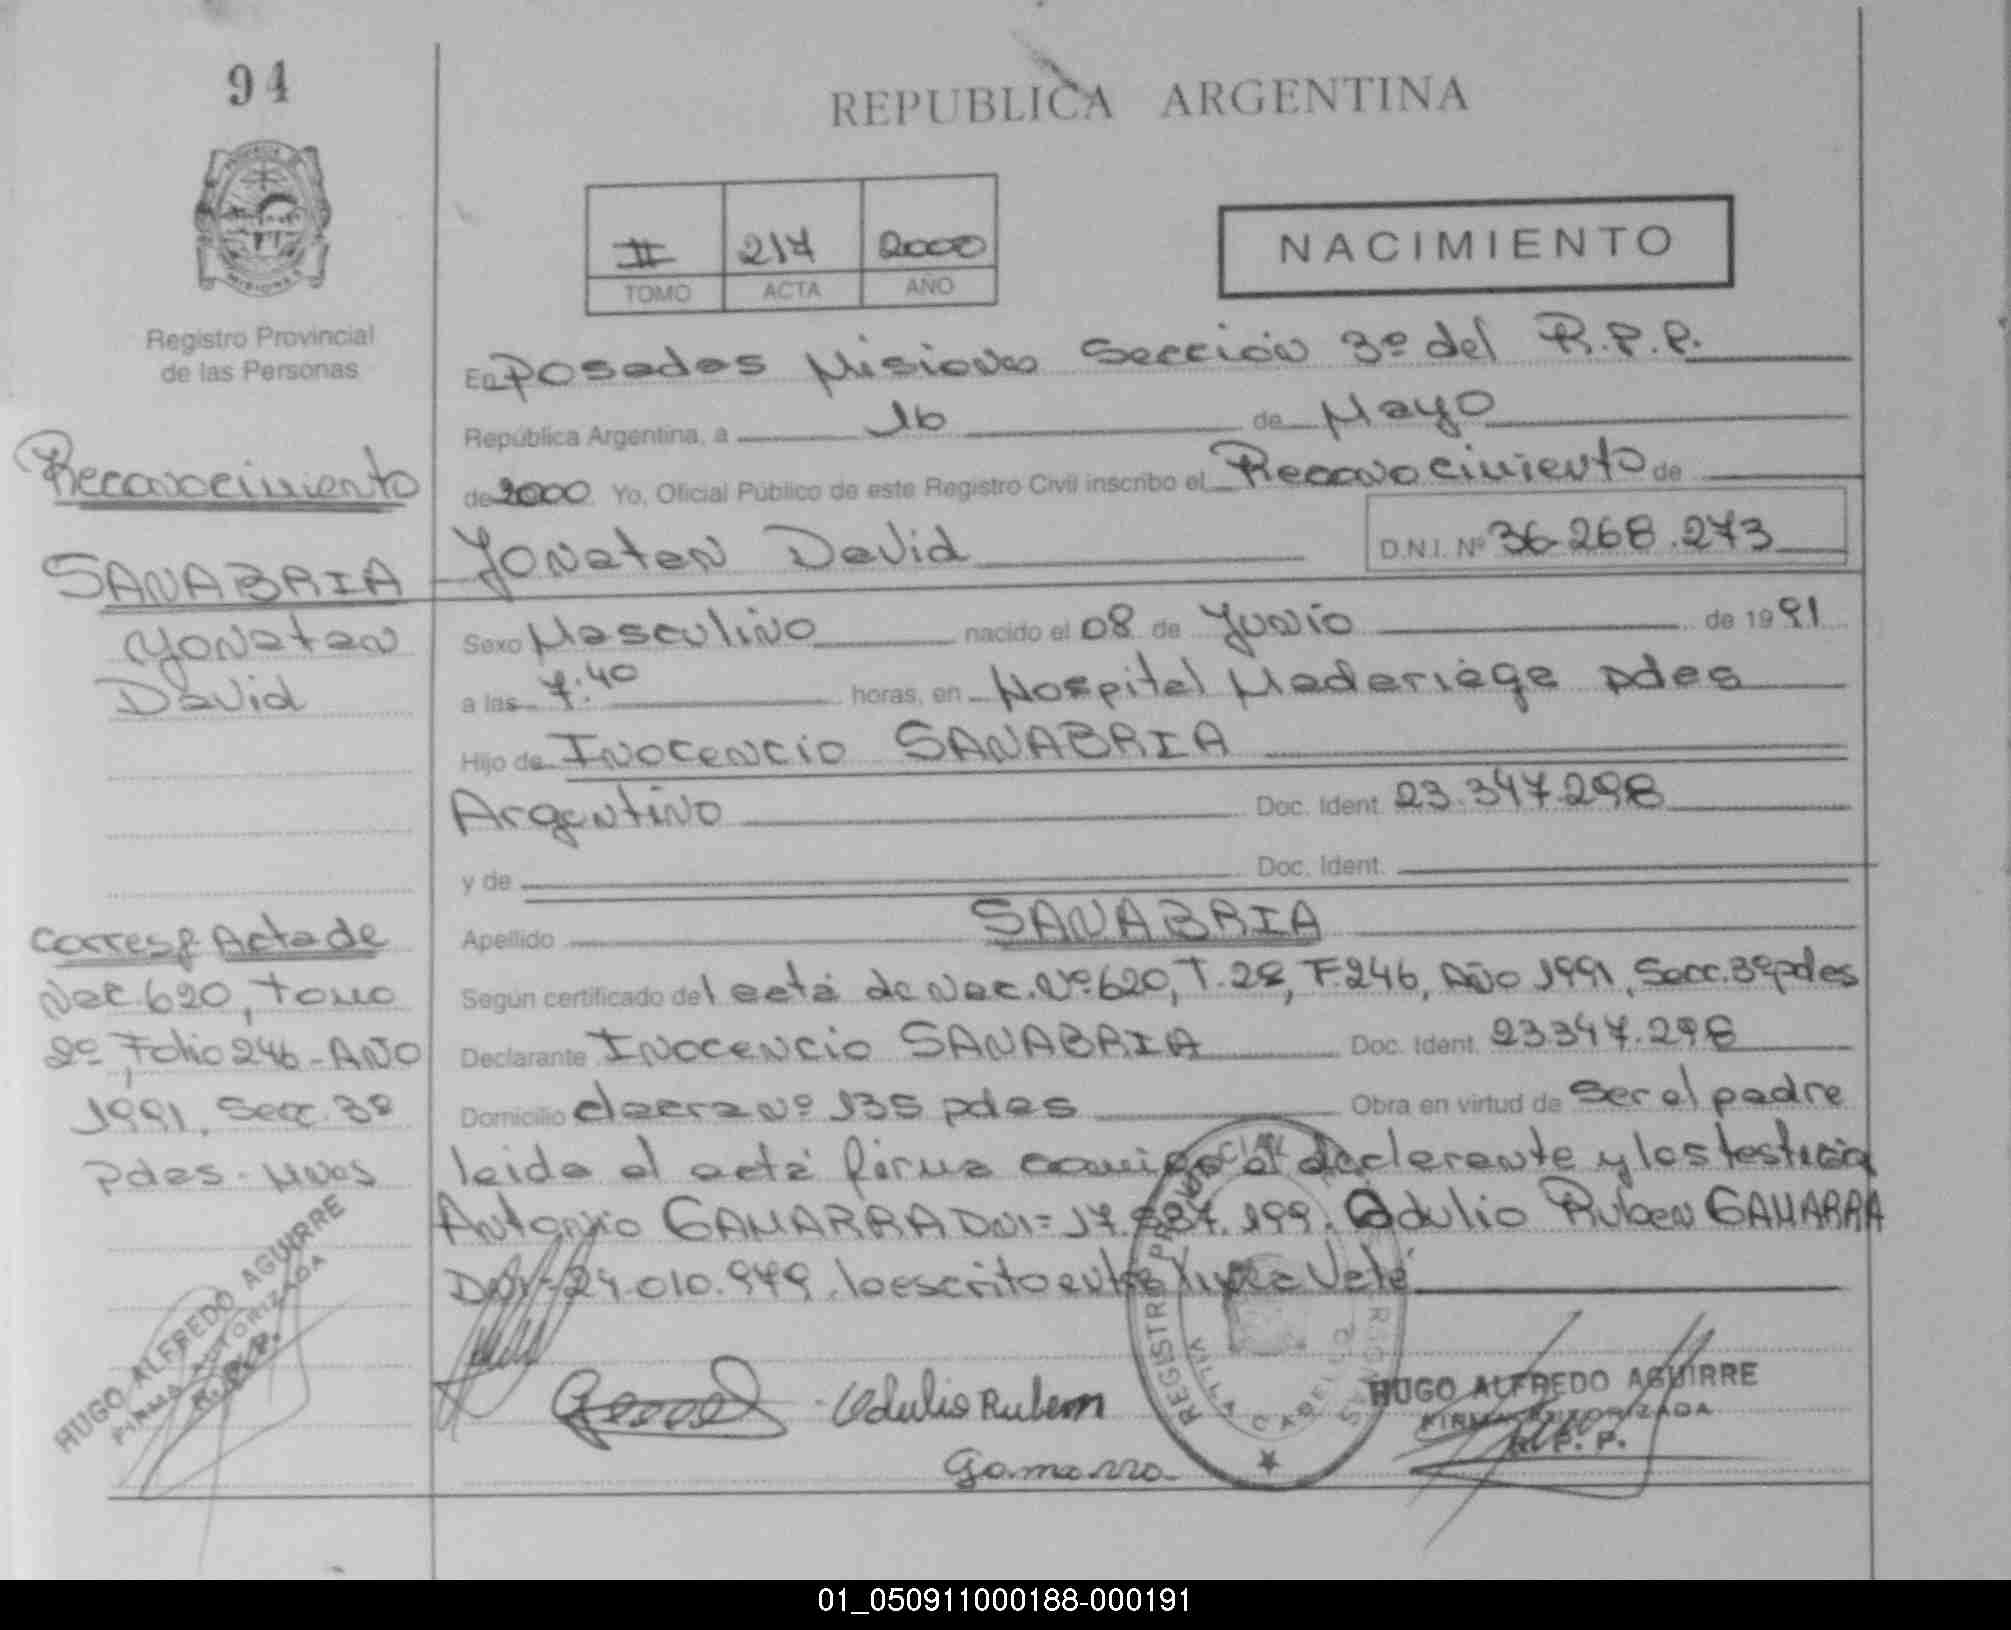 94
REPUBLICA ARGENTINA
II 217 2000
TOMO ACTA AÑO
NACIMIENTO
Registro Provincial
de las Personas
En Posadas Misiones Sección 3º del R.P.P.
República Argentina, a 16 de Mayo
de 2000 Yo, Oficial Público de este Registro Civil inscribo el Reconocimiento de
Yonatan David D.N.I. Nº 36.268.273
Sexo Masculino nacido el 08 de Junio de 1991
a las 7:40 horas, en Hospital Madariaga pdas
Hijo de Inocencio SANABRIA
Argentino Doc. Ident. 23.347.298
y de Doc. Ident.
Apellido SANABRIA
Según certificado del acta de Nac. Nº 620, T. 2º, F. 246, Año 1991, Secc. 3º pdas
Declarante Inocencio SANABRIA Doc. Ident. 23347.298
Domicilio chacra Nº 135 pdas Obra en virtud de ser el padre
leida el acta firma conmigo el declarante y los testigos
Antonio GAMARRA DNI= 17. .199. Odulio Ruben GAMARRA
DNI=24.010.949. lo escrito entre linea Vale
Reconocimiento
SANABRIA
Yonatan
David
Corresp Acta de
Nac. 620, Tomo
2º, Folio 246 - AÑO
1991. Secc. 3º
Pdas - Mnes
HUGO ALFREDO AGUIRRE
FIRMA AUTORIZADA
R. P. P.
Odulio Rubem
Gamarra
REGISTRO PROVINCIAL
VILLA CABELLO
HUGO ALFREDO AGUIRRE
FIRMA AUTORIZADA
R. P. P.
01_050911000188-000191